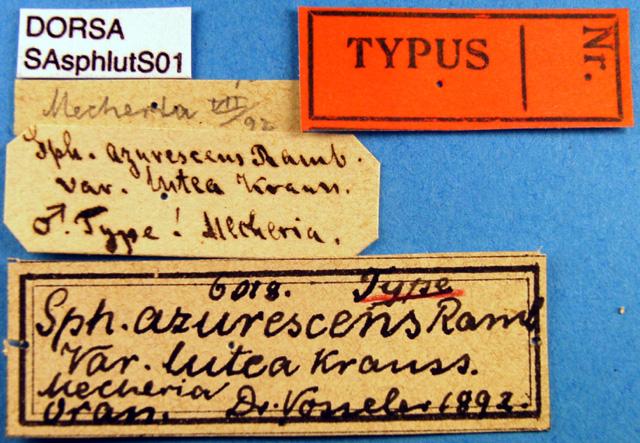 DORSA
SAsphlutS01
TYPUS
Nr.
Mecheria VII/92
Sph. azurescens Ramb.
var. lutea Krauss.
♂. Type! Mecheria.
6018. Type
Sph. azurescens Ramb.
Var. lutea Krauss.
Mecheria
Oran. Dr. Vosseler 1892.